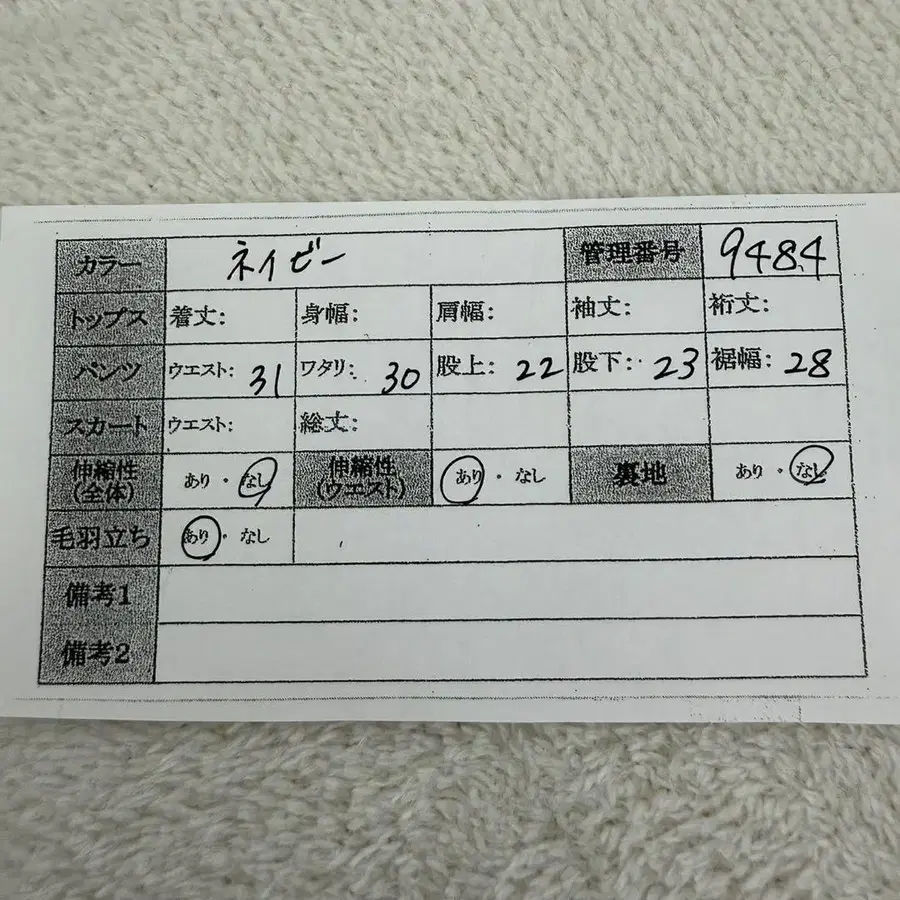 カラー ネイビー 管理番号 9484
トップス 着丈: 身幅: 肩幅: 袖丈: 裄丈:
パンツ ウエスト: 31 ワタリ: 30 股上: 22 股下: 23 裾幅: 28
スカート ウエスト: 総丈:
伸縮性(全体) あり・なし 伸縮性(ウエスト) あり・なし 裏地 あり・なし
毛羽立ち あり・なし
備考1
備考2